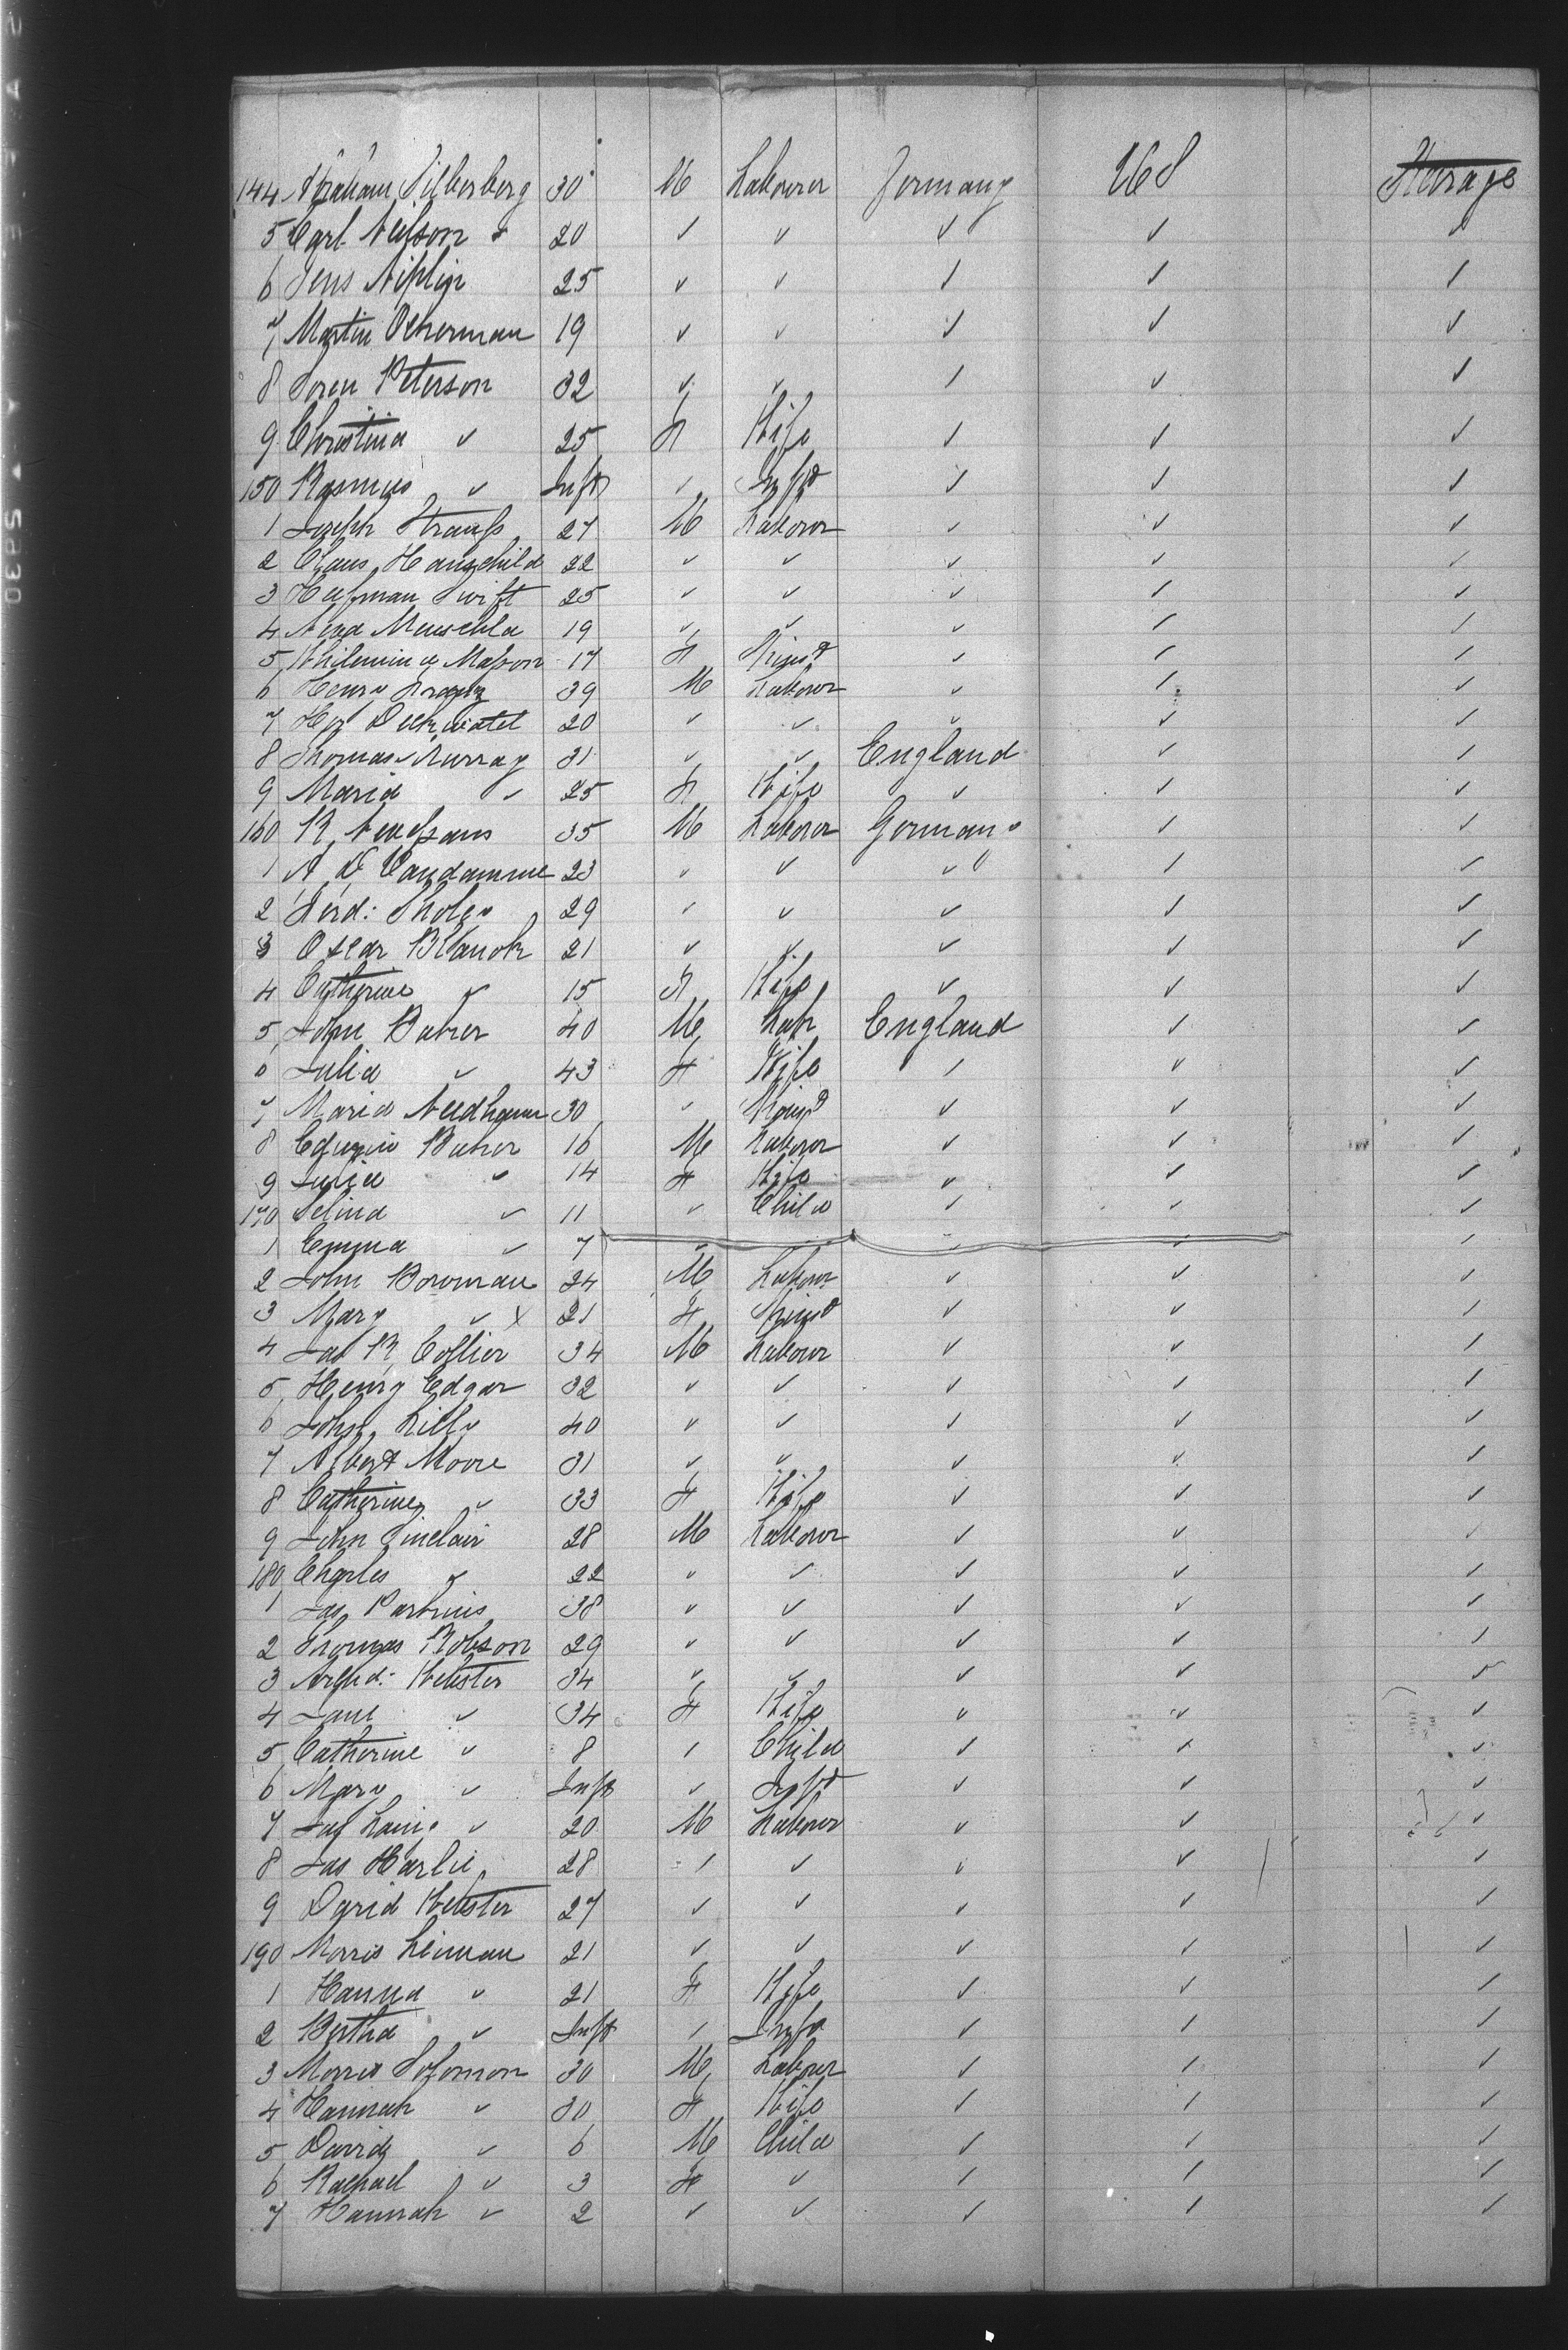 144 Abraham Silberberg 30 M Labourer Germany US Steerage
5 Carl Neilson 20 ✓ ✓ ✓ ✓ ✓
6 Jens 25 ✓ ✓ ✓ ✓ ✓
7 Martin Ockerman 19 ✓ ✓ ✓ ✓ ✓
8 Soren Peterson 32 ✓ ✓ ✓ ✓ ✓
9 Christina ✓ 25 F Wife ✓ ✓ ✓
150 Rasmus ✓ Inft ✓ Inft ✓ ✓ ✓
1 Joseph Strauss 27 M Labour ✓ ✓ ✓
2 Claus Hauschild 22 ✓ ✓ ✓ ✓ ✓
3 Herman Swift 25 ✓ ✓ ✓ ✓ ✓
4 19 ✓ ✓ ✓ ✓ ✓
5 17 F ✓ ✓ ✓
6 Henry 39 M Labour ✓ ✓ ✓
7 20 ✓ ✓ ✓ ✓ ✓
8 Thomas Murray 31 ✓ ✓ England ✓ ✓
9 Maria ✓ 25 F Wife ✓ ✓ ✓
160 R 35 M Labour Germany ✓ ✓
1 A D Vandamme 23 ✓ ✓ ✓ ✓ ✓
2 Ferd: 29 ✓ ✓ ✓ ✓ ✓
3 Oscar Blanck 21 ✓ ✓ ✓ ✓ ✓
4 Catherine ✓ 15 F Wife ✓ ✓ ✓
5 John Baker 40 M Labr England ✓ ✓
6 Julia ✓ 43 F Wife ✓ ✓ ✓
7 Maria Needham 30 ✓ ✓ ✓ ✓
8 Edwin Baker 16 M Labour ✓ ✓ ✓
9 Julia ✓ 14 F Wife ✓ ✓ ✓
170 Selina ✓ 11 ✓ Child ✓ ✓ ✓
1 Emma ✓ 7 ✓ ✓ ✓ ✓ ✓
2 John Bowman 24 M Labour ✓ ✓ ✓
3 Mary ✓ X 21 F ✓ ✓ ✓
4 Jas R Collier 34 M Labour ✓ ✓ ✓
5 Henry Edgar 32 ✓ ✓ ✓ ✓ ✓
6 John Lilly 40 ✓ ✓ ✓ ✓ ✓
7 Albert Moore 31 ✓ ✓ ✓ ✓ ✓
8 Catherine ✓ 33 F Wife ✓ ✓ ✓
9 John Sinclair 28 M Labour ✓ ✓ ✓
180 Charles ✓ 22 ✓ ✓ ✓ ✓ ✓
1 Jas 38 ✓ ✓ ✓ ✓ ✓
2 Thomas Robson 29 ✓ ✓ ✓ ✓ ✓
3 Archd: Webster 34 ✓ ✓ ✓ ✓ ✓
4 Jane ✓ 34 F Wife ✓ ✓ ✓
5 Catherine ✓ 8 ✓ Child ✓ ✓ ✓
6 Mary ✓ Inft ✓ Inft ✓ ✓ ✓
7 Jas Laing ✓ 20 M Labour ✓ ✓ ✓
8 Jas 28 ✓ ✓ ✓ ✓ ✓
9 David Webster 27 ✓ ✓ ✓ ✓ ✓
190 Morris Liman 21 ✓ ✓ ✓ ✓ ✓
1 Hanna ✓ 21 F Wife ✓ ✓ ✓
2 Bertha ✓ Inft ✓ Inft ✓ ✓ ✓
3 Morris Solomon 30 M Labour ✓ ✓ ✓
4 Hannah ✓ 30 F Wife ✓ ✓ ✓
5 David ✓ 6 M Child ✓ ✓ ✓
6 Rachael ✓ 3 F ✓ ✓ ✓ ✓
7 Hannah ✓ 2 ✓ ✓ ✓ ✓ ✓